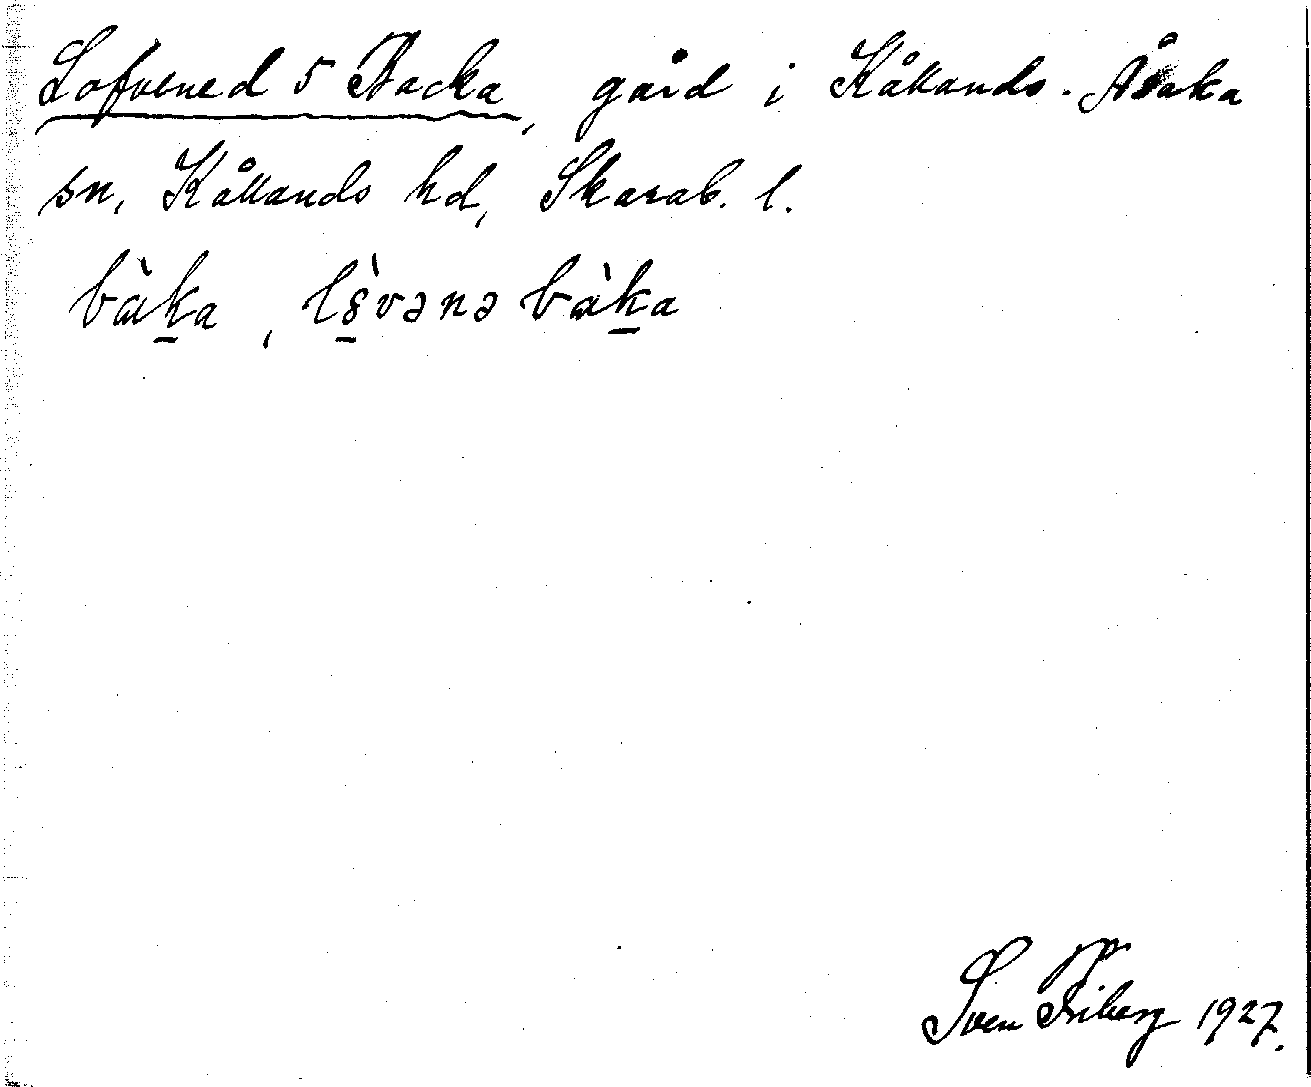 Lofvened 5 Backa, gård i Kållands-Åsaka
sn, Kållands hd, Skarab. l.
bàka, lòvənə bàka
Sven Friberg 1927.